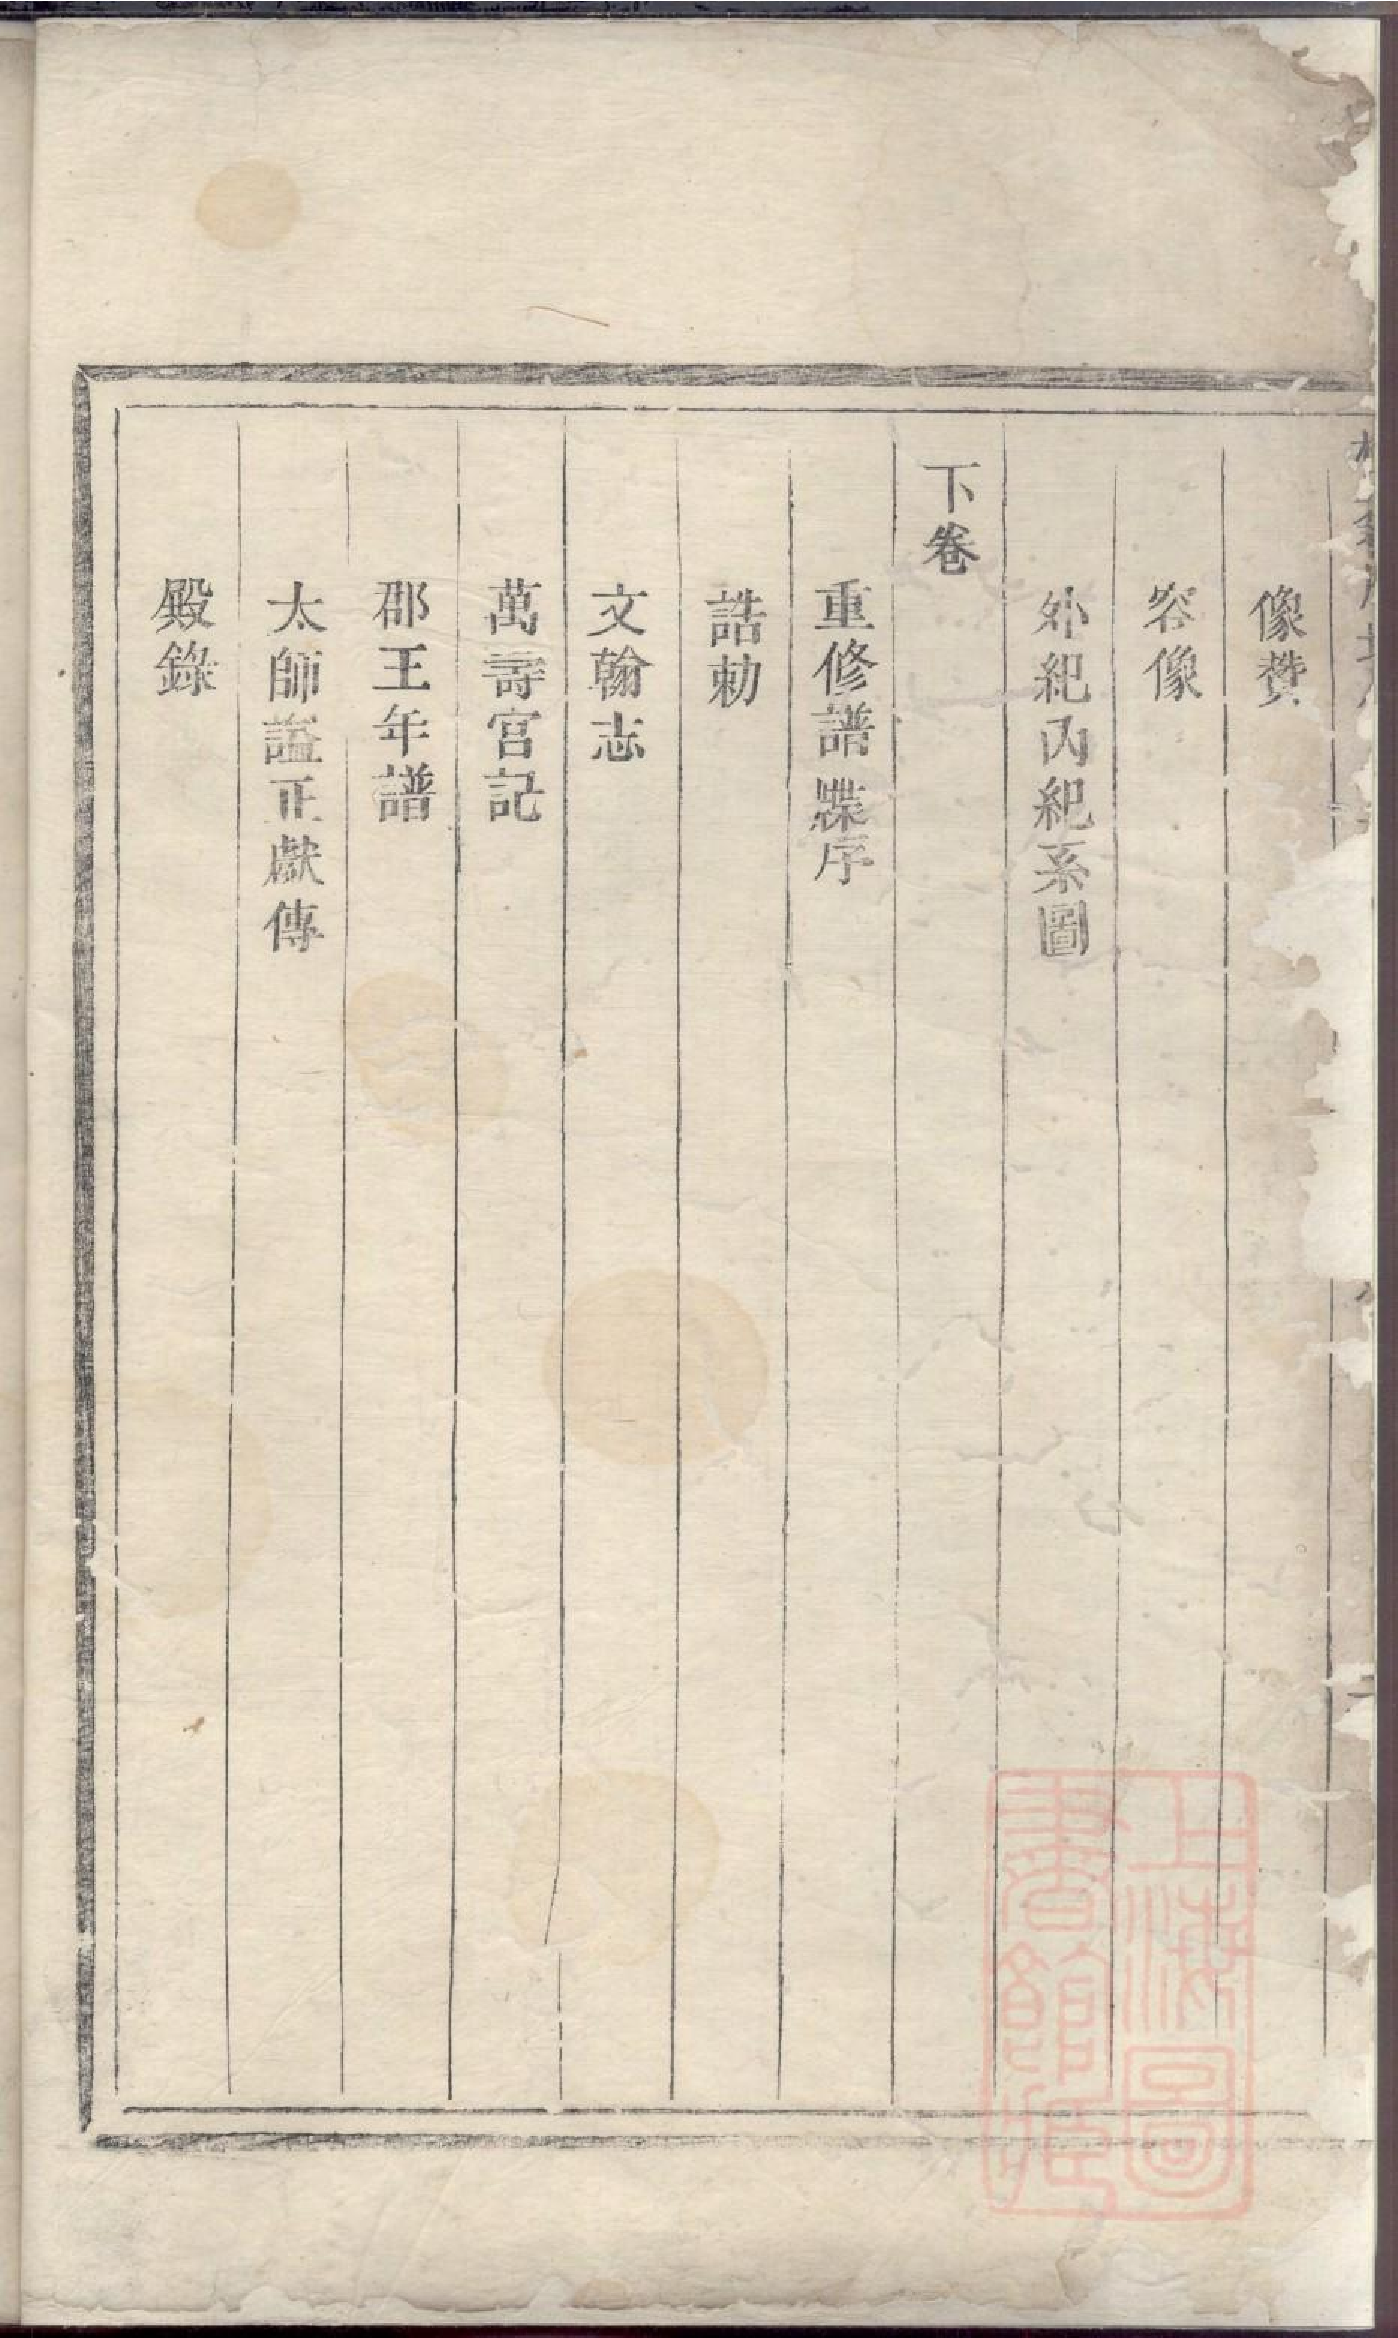 像贊
容像
外紀內紀系圖
下卷
重修譜牒序
誥勅
文翰志
萬壽宮記
郡王年譜
太師謚正獻傳
殿錄
上海圖
書館藏